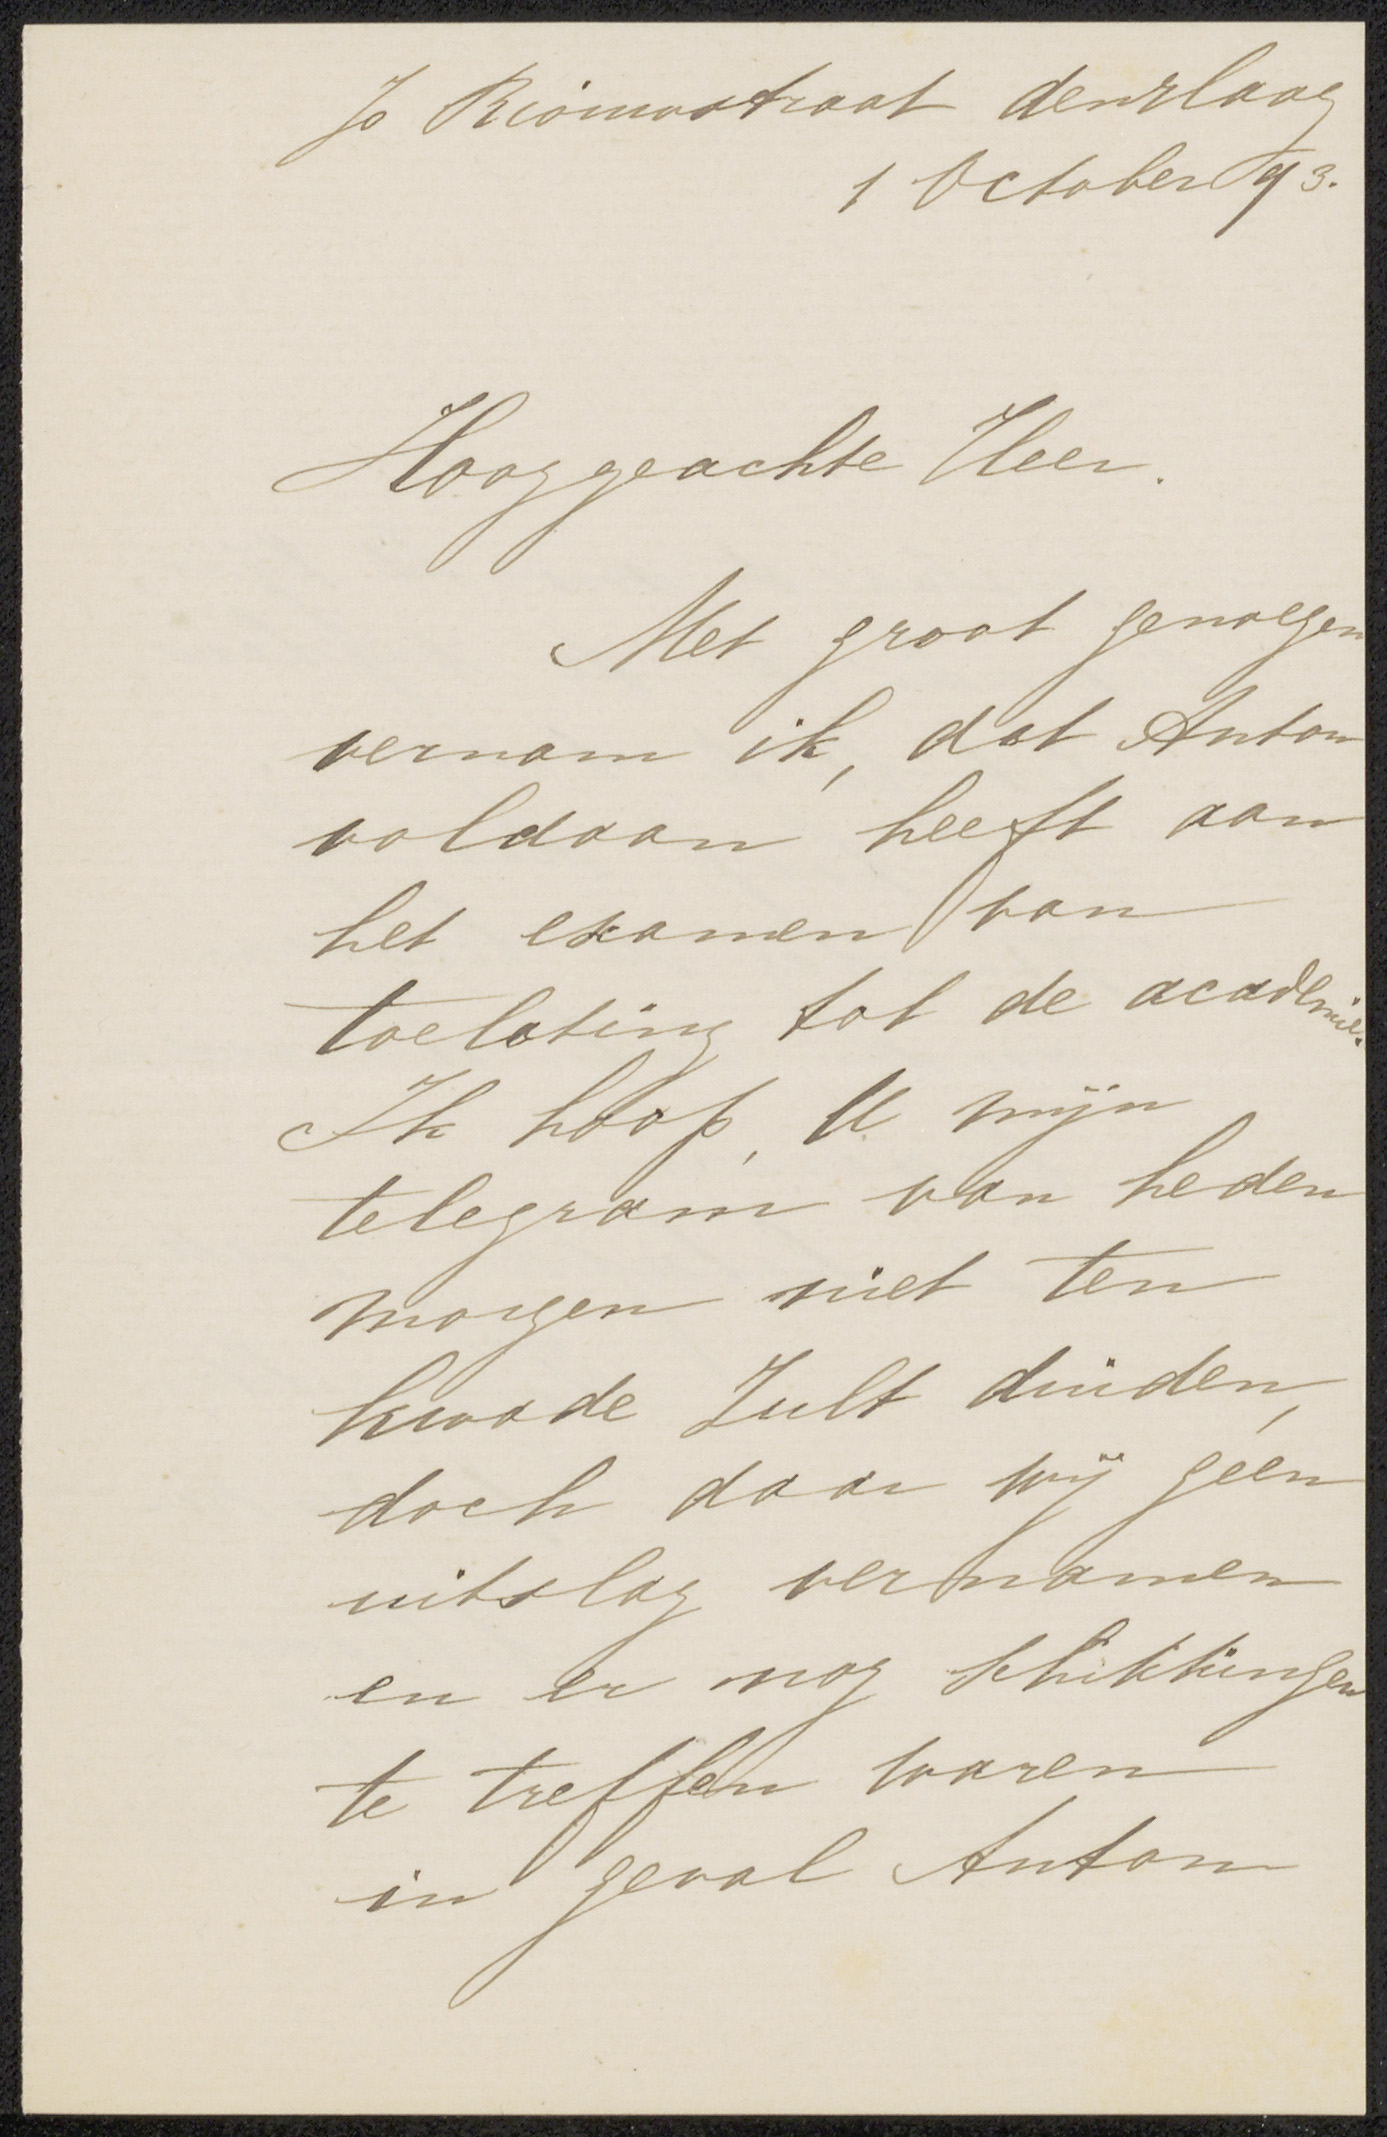 Riouwstraat den Haag
1 October 93.
Hooggeachte Heer.
Met groot genoegen
vernam ik, dat Anton
voldaan heeft aan
het examen van
toelating tot de academie.
Ik hoop, U mijn
telegram van heden
morgen niet ten
kwade Zult duiden,
doch daar wij geen
uitslag vernamen
en er nog schikkingen
te treffen waren
in geval Anton